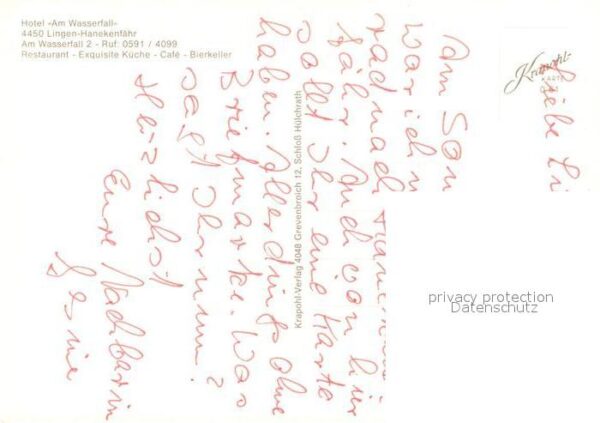 Hotel »Am Wasserfall«
4450 Lingen-Hanekenfähr
Am Wasserfall 2 - Ruf: 0591 / 4099
Restaurant - Exquisite Küche - Café - Bierkeller
Krapohl-Verlag 4048 Grevenbroich 12, Schloß Hülchrath
Krapohl-
KARTE
Liebe Li
Am Son
war ich
rad nach Hane
fähr. Auch von hier
sollt Ihr eine Karte
haben. Allerdings ohne
Briefmarke. Was
sagt Ihr nun?
Herzlichst
Eure Nachbarin
Gesine
privacy protection
Datenschutz